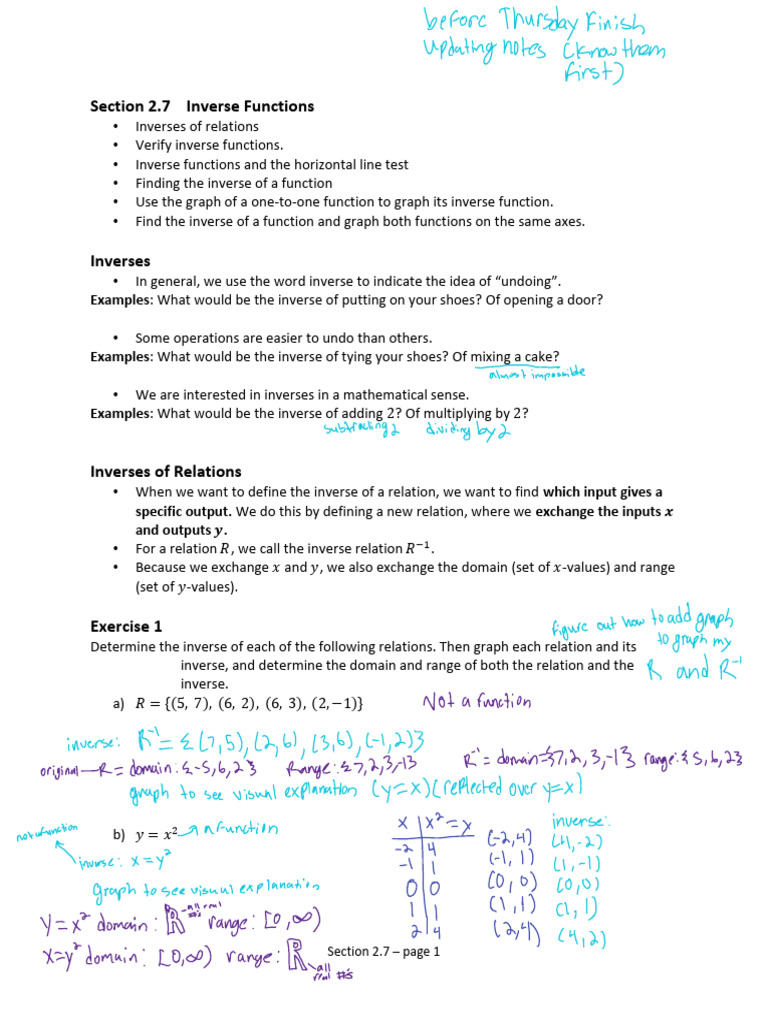 before Thursday Finish
updating notes (know them
first)
Section 2.7 Inverse Functions
• Inverses of relations
• Verify inverse functions.
• Inverse functions and the horizontal line test
• Finding the inverse of a function
• Use the graph of a one-to-one function to graph its inverse function.
• Find the inverse of a function and graph both functions on the same axes.
Inverses
• In general, we use the word inverse to indicate the idea of “undoing”.
Examples: What would be the inverse of putting on your shoes? Of opening a door?
• Some operations are easier to undo than others.
Examples: What would be the inverse of tying your shoes? Of mixing a cake?
almost impossible
• We are interested in inverses in a mathematical sense.
Examples: What would be the inverse of adding 2? Of multiplying by 2?
subtracting 2 dividing by 2
Inverses of Relations
• When we want to define the inverse of a relation, we want to find which input gives a
specific output. We do this by defining a new relation, where we exchange the inputs x
and outputs y.
• For a relation R, we call the inverse relation R⁻¹.
• Because we exchange x and y, we also exchange the domain (set of x-values) and range
(set of y-values).
Exercise 1
figure out how to add graph
to graph my
R and R⁻¹
Determine the inverse of each of the following relations. Then graph each relation and its
inverse, and determine the domain and range of both the relation and the
inverse.
a) R = {(5, 7), (6, 2), (6, 3), (2, −1)} Not a function
inverse: R⁻¹ = {(7,5), (2,6), (3,6), (-1,2)}
original — R = domain: {-5, 6, 2} Range: {7, 2, 3, -1} R⁻¹ = domain {7, 2, 3, -1} range: {5, 6, 2}
graph to see visual explanation (y=x) (reflected over y=x)
b) y = x² → a function
not a function
inverse: x = y²
graph to see visual explanation
y = x² domain: ℝ - all real #s range: [0, ∞)
x = y² domain: [0, ∞) range: ℝ all real #s
x | x² = y
-2 | 4 (-2, 4)
-1 | 1 (-1, 1)
0 | 0 (0, 0)
1 | 1 (1, 1)
2 | 4 (2, 4)
inverse:
(4, -2)
(1, -1)
(0, 0)
(1, 1)
(4, 2)
Section 2.7 – page 1